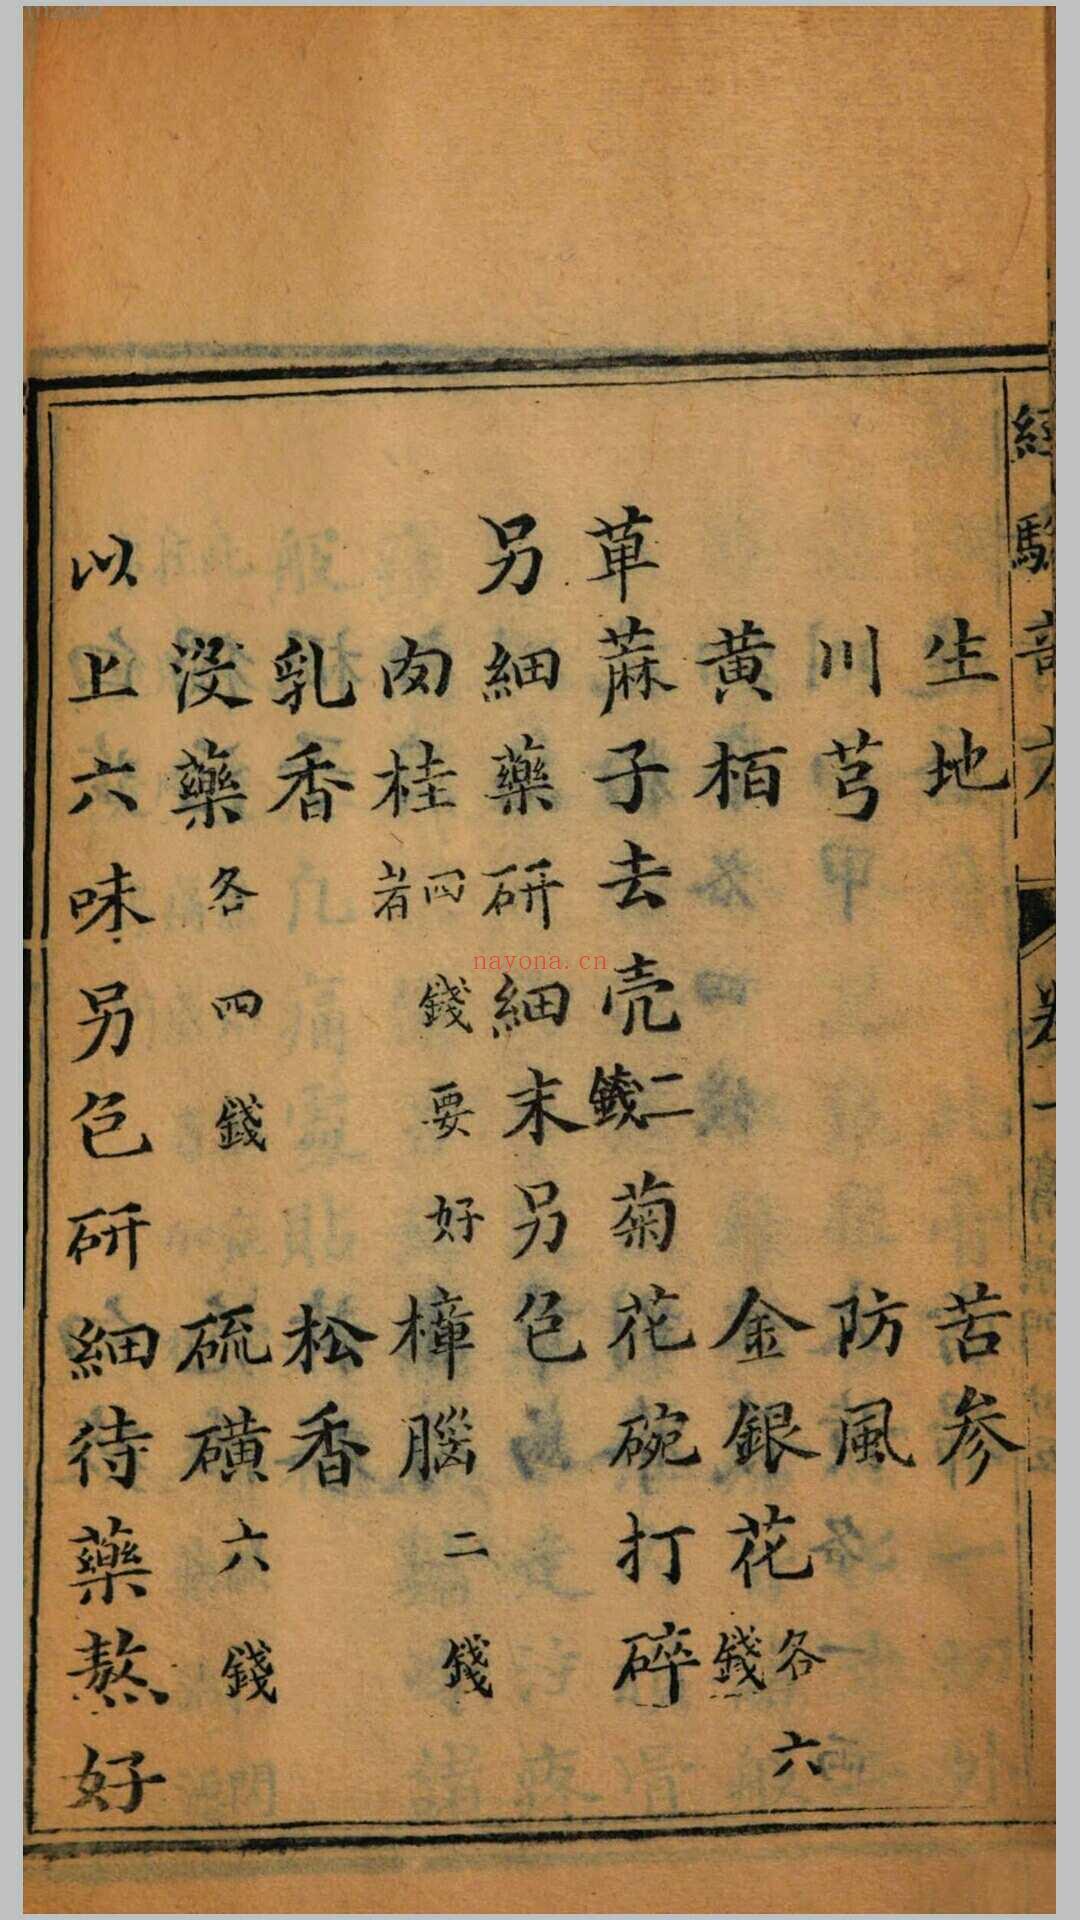 經驗
卷一
生地 苦参
川芎 防風
黄栢 金銀花各六錢
萆蔴子去壳二錢菊花碗打碎
另細藥研細末另包
肉桂四錢要好者 樟腦二錢
乳香 松香
没藥各四錢 硫磺六錢
以上六味另包研細待藥熬好
nayona.cn